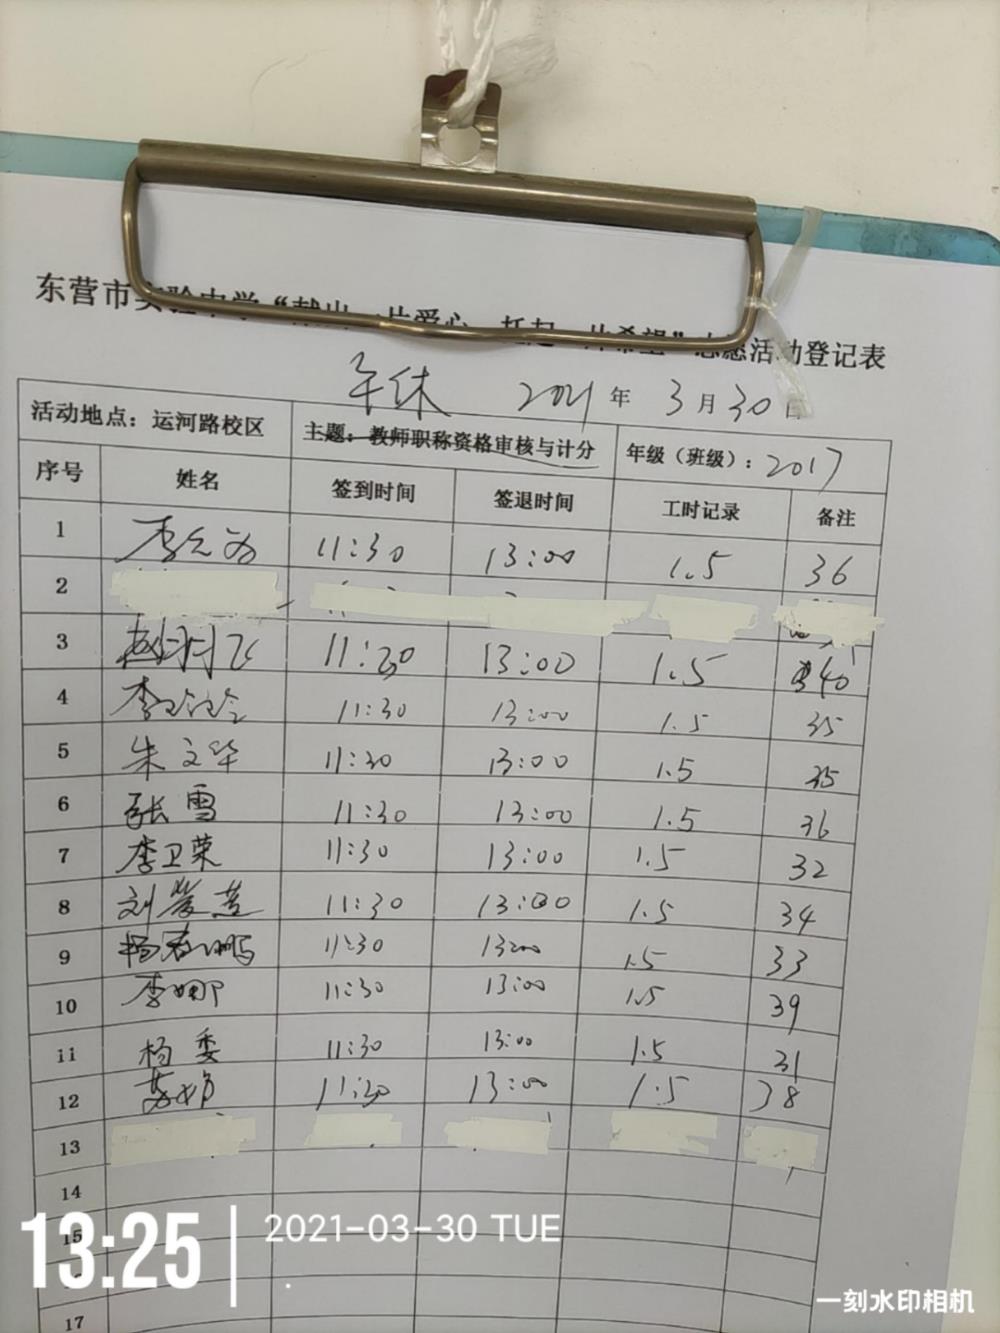 东营市实验中学“献出一片爱心 托起一片希望”志愿活动登记表
午休 2021年3月30日
活动地点：运河路校区 主题：教师职称资格审核与计分 年级（班级）：2017
序号 姓名 签到时间 签退时间 工时记录 备注
1 11:30 13:00 1.5 36
2
3 11:30 13:00 1.5 40
4 11:30 13:00 1.5 35
5 朱文华 11:30 13:00 1.5 35
6 张雪 11:30 13:00 1.5 36
7 李卫荣 11:30 13:00 1.5 32
8 刘 11:30 13:00 1.5 34
9 杨 鹏 11:30 13:00 1.5 33
10 李娜 11:30 13:00 1.5 39
11 杨委 11:30 13:00 1.5 31
12 11:30 13:00 1.5 38
13
14
15
17
13:25 2021-03-30 TUE
一刻水印相机